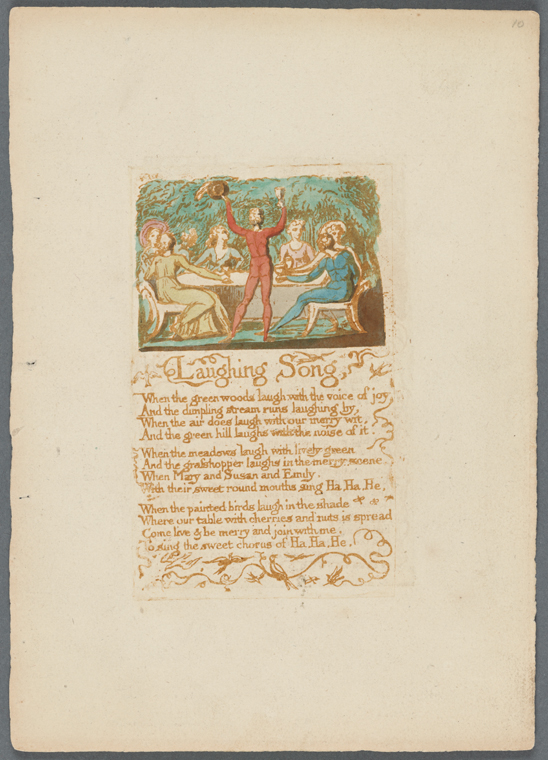 10
Laughing Song,
When the green woods laugh with the voice of joy
And the dimpling stream runs laughing by,
When the air does laugh with our merry wit,
And the green hill laughs with the noise of it.
When the meadows laugh with lively green
And the grasshopper laughs in the merry scene.
When Mary and Susan and Emily.
With their sweet round mouths sing Ha, Ha, He.
When the painted birds laugh in the shade
Where our table with cherries and nuts is spread
Come live & be merry and join with me,
To sing the sweet chorus of Ha, Ha, He.